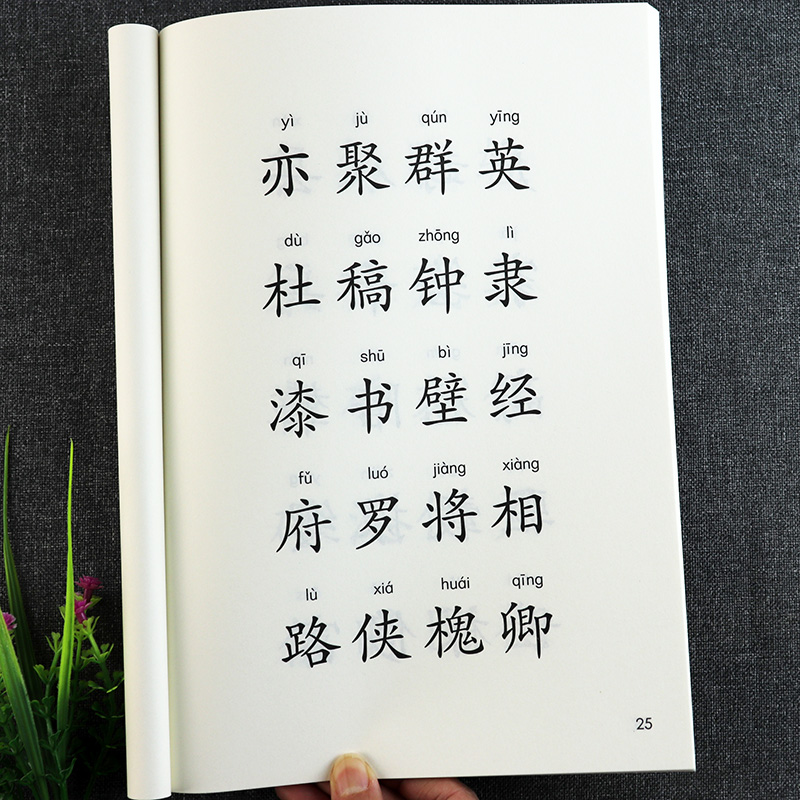 yì jù qún yīng
亦聚群英
dù gǎo zhōng lì
杜稿钟隶
qī shū bì jīng
漆书壁经
fǔ luó jiàng xiàng
府罗将相
lù xiá huái qīng
路侠槐卿
25